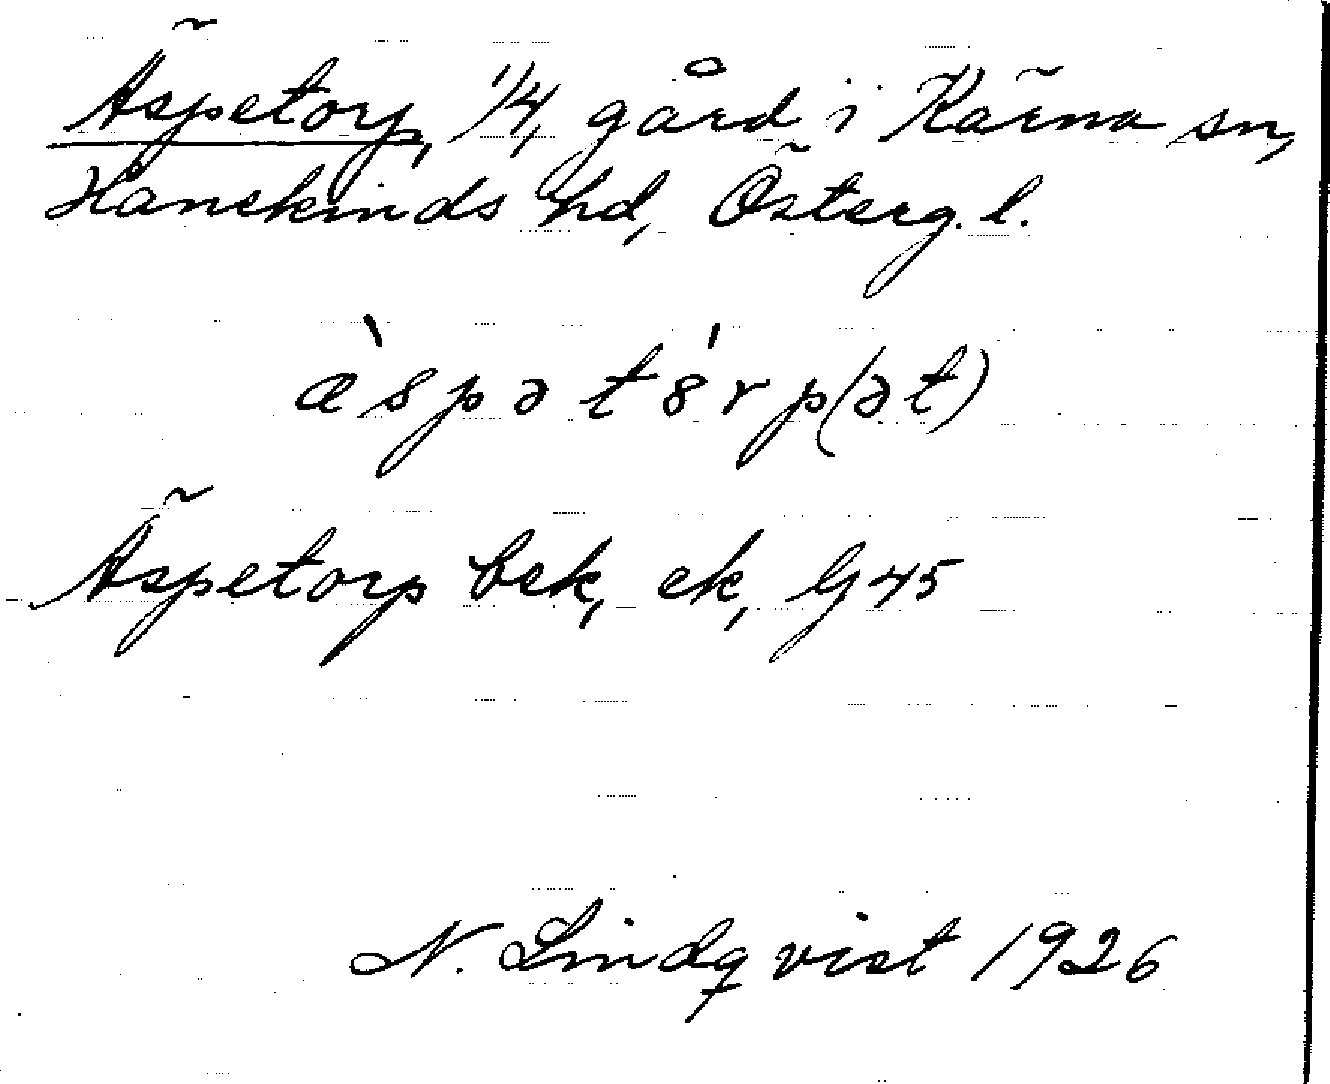 Äspetorp, 1/4, gård i Kärna sn,
Hanekinds hd, Österg. l.
æ̀spətȣ́rp(ət)
Äspetorp bek, ek, G 45
N. Lindqvist 1926